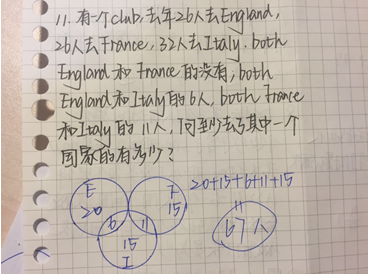 11. 有一个club,去年26人去England,
26人去France,32人去Italy.both
England和France的没有,both
England和Italy的6人,both France
和Italy的11人,问至少去了其中一个
国家的有多少?
E
20
F
15
6
11
15
I
20+15+6+11+15
=
67人